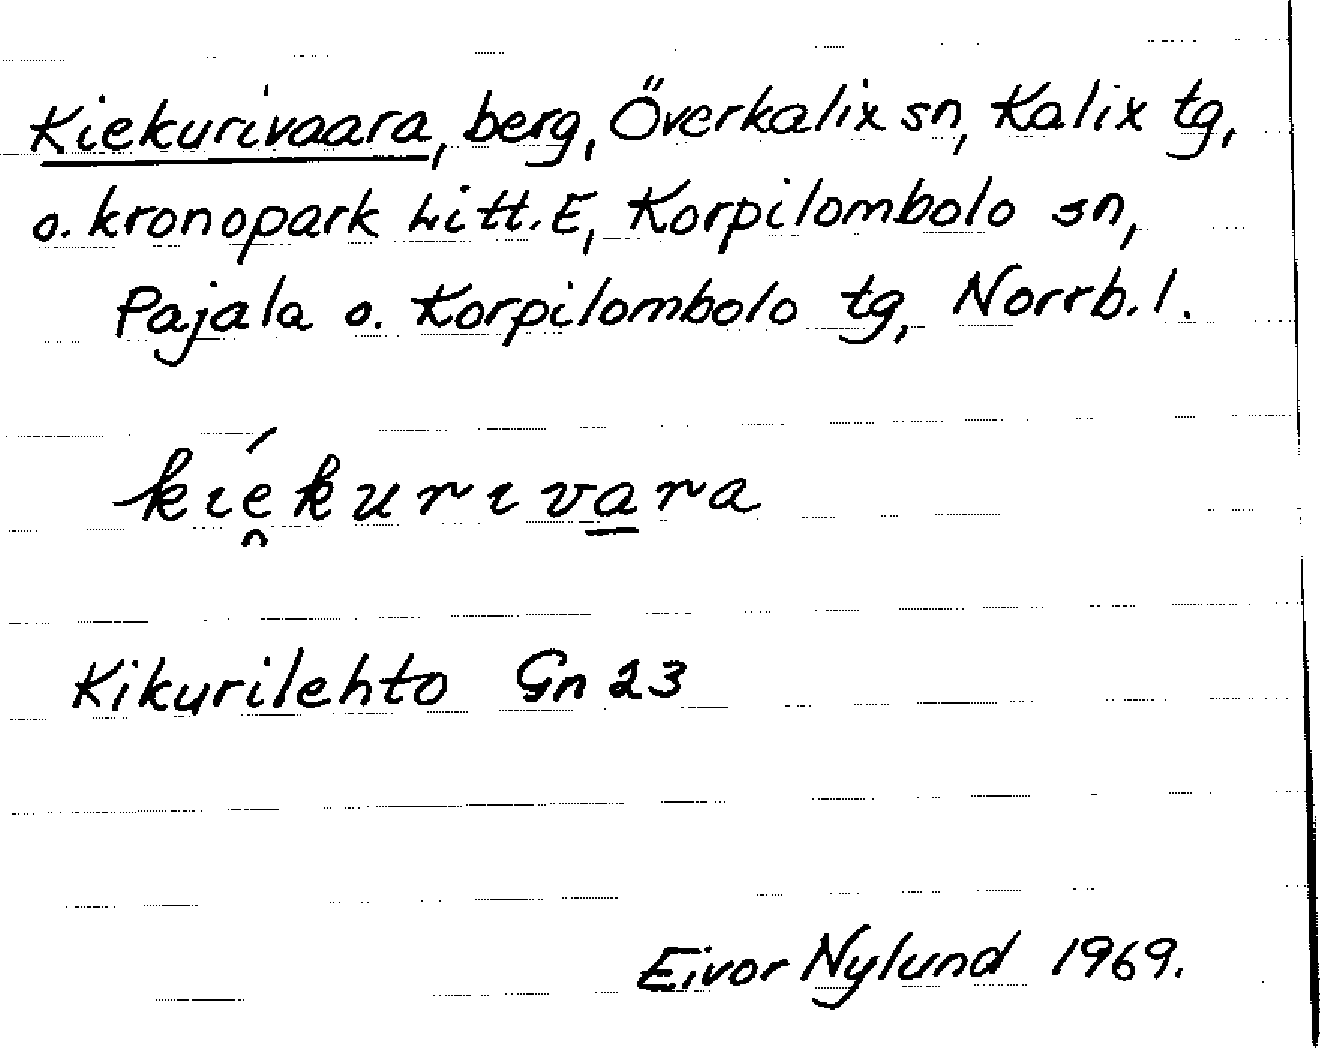 Kiekurivaara, berg, Överkalix sn, Kalix tg,
o. kronopark Litt. E, Korpilombolo sn,
Pajala o. Korpilombolo tg, Norrb. l.
kié̯kuriva̲ra
Kikurilehto Gn 23
Eivor Nylund 1969.